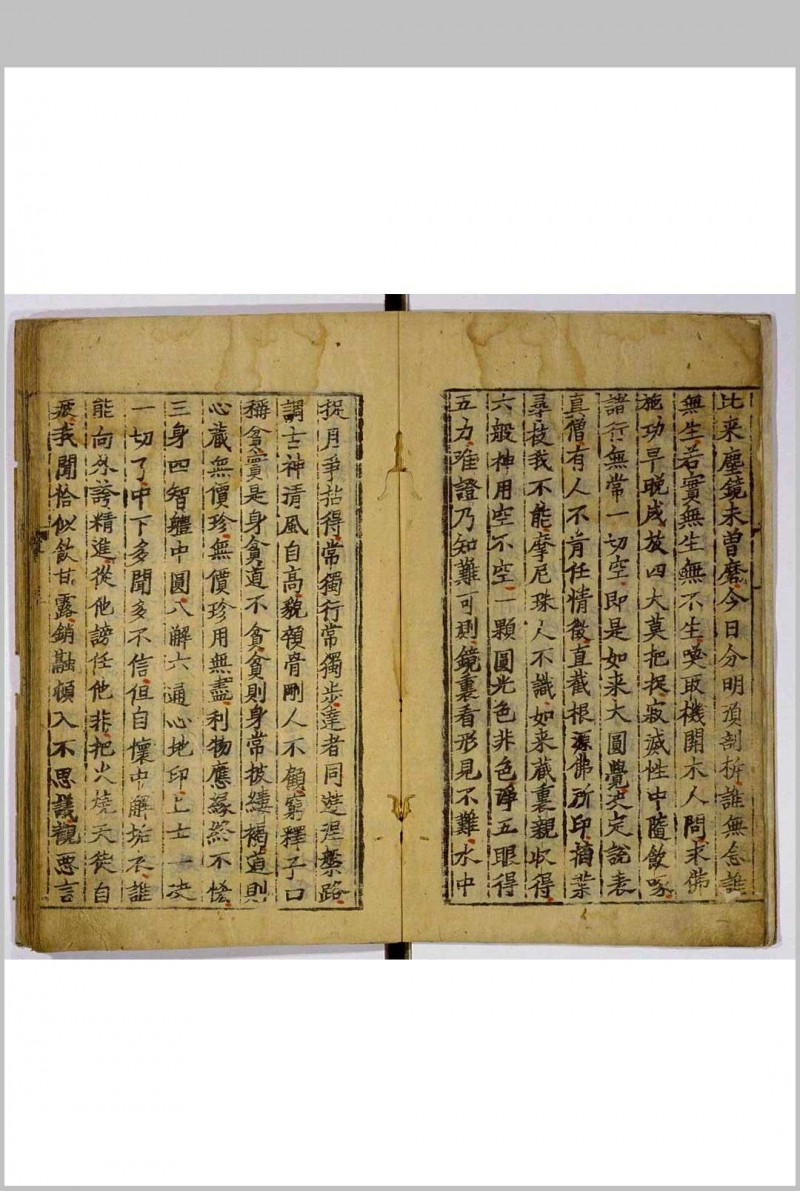 比来塵鏡未曾磨今日分明須剖析誰無念誰
無生若實無生無不生喚取機開木人問求佛
施功早晚成放四大莫把捉寂滅性中隨飲啄
諸行無常一切空即是如来大圓覺决定說表
真僧有人不肯任情徵直截根源佛所印摘葉
尋枝我不能摩尼珠人不識如来藏裏親收得
六般神用空不空一顆圓光色非色淨五眼得
五力唯證乃知難可測鏡裏看形見不難水中
捉月爭拈得常獨行常獨步達者同遊涅槃路
調古神清風自高貌顇骨剛人不顧窮釋子口
稱貧實是身貧道不貧貧則身常披縷褐道則
心藏無價珍無價珍用無盡利物應緣終不悋
三身四智體中圓八解六通心地印上士一决
一切了中下多聞多不信但自懷中解垢衣誰
能向外誇精進從他謗任他非把火燒天徒自
疲我聞恰似飲甘露銷融頓入不思議觀惡言